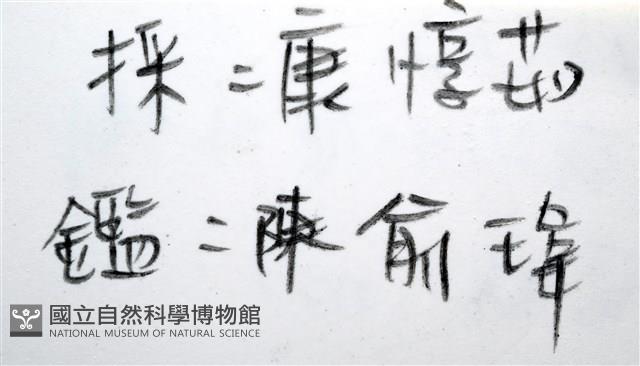 採:康惇茹
鑑:陳俞瑋
國立自然科學博物館
NATIONAL MUSEUM OF NATURAL SCIENCE